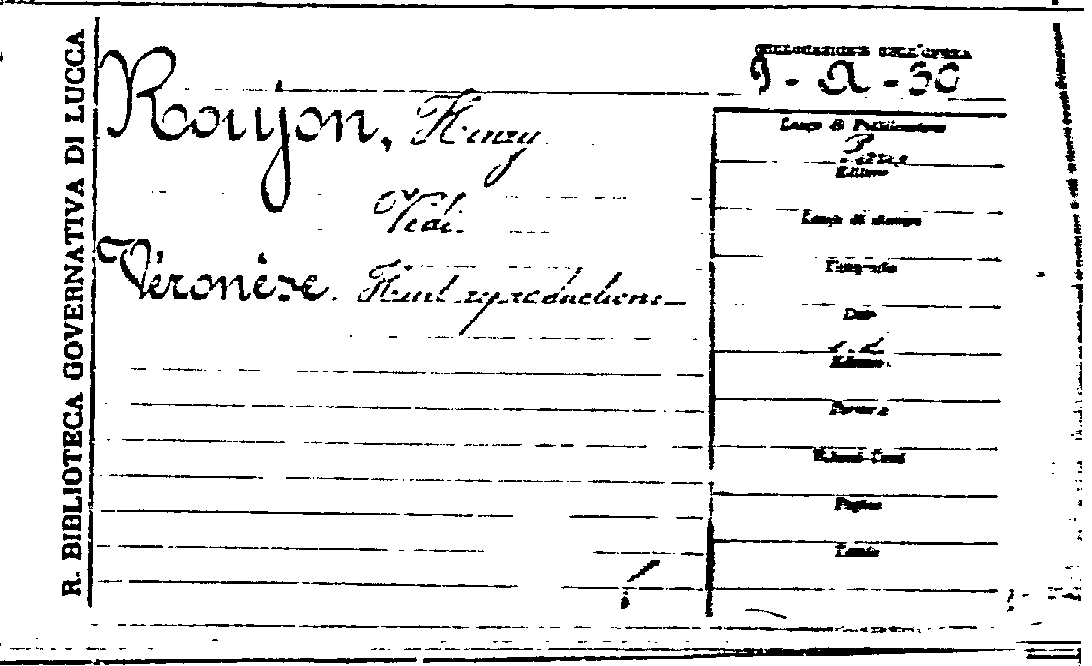 R. BIBLIOTECA GOVERNATIVA DI LUCCA
COLLOCAZIONE DELL'OPERA
Roujon, Henry
Vedi
Véronèse. Huit reproductions
Luogo di Pubblicazione
Editore
Luogo di stampa
Tipografo
Data
Edizione
Formato
Volumi
Pagine
Tavole